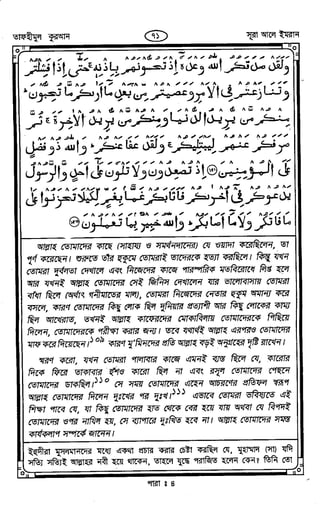 তাফহীমুল কুরআন
৭১
সূরা আলে ইমরান
وَلَقَدْ صَدَقَكُمُ اللهُ وَعْدَهٗٓ اِذْ تَحُسُّوْنَهُمْ بِاِذْنِهٖ حَتّٰىٓ اِذَا فَشِلْتُمْ
وَتَنَازَعْتُمْ فِى الْاَمْرِ وَعَصَيْتُمْ مِّنْۢ بَعْدِ مَآ اَرٰىكُمْ مَّا تُحِبُّوْنَ
مِنْكُمْ مَّنْ يُّرِيْدُ الدُّنْيَا وَمِنْكُمْ مَّنْ يُّرِيْدُ الْاٰخِرَةَ ثُمَّ
صَرَفَكُمْ عَنْهُمْ لِيَبْتَلِيَكُمْ وَلَقَدْ عَفَا عَنْكُمْ وَاللهُ ذُوْ فَضْلٍ
عَلَى الْمُؤْمِنِيْنَ اِذْ تُصْعِدُوْنَ وَلَا تَلْوٗنَ عَلٰىٓ اَحَدٍ وَّالرَّسُوْلُ
يَدْعُوْكُمْ فِىْٓ اُخْرٰىكُمْ فَاَثَابَكُمْ غَمًّاۢ بِغَمٍّ لِّكَيْلَا تَحْزَنُوْا عَلٰى
مَا فَاتَكُمْ وَلَا مَآ اَصَابَكُمْ وَاللهُ خَبِيْرٌۢ بِمَا تَعْمَلُوْنَ
আল্লাহ তোমাদের কাছে (সাহায্য ও সমর্থনদানের) যে ওয়াদা করেছিলেন, তা
পূর্ণ করেছেন। শুরুতে তাঁর হুকুমে তোমরাই তাদেরকে হত্যা করছিলে। কিন্তু যখন
তোমরা দুর্বলতা দেখালে এবং নিজেদের কাজে পারস্পরিক মতবিরোধে লিপ্ত হলে
আর যখনই আল্লাহ তোমাদের সেই জিনিস দেখালেন যার ভালোবাসায় তোমরা
বাঁধা ছিলে (অর্থাৎ গনীমাতের মাল), তোমরা নিজেদের নেতার হুকুম অমান্য করে
বসলে, কারণ তোমাদের কিছু লোক ছিল দুনিয়ার প্রত্যাশী আর কিছু লোকের কাম্য
ছিল আখেরাত, তখনই আল্লাহ কাফেরদের মোকাবিলায় তোমাদেরকে পিছিয়ে
দিলেন, তোমাদেরকে পরীক্ষা করার জন্য। তবে যথার্থই আল্লাহ এরপরও তোমাদের
মাফ করে দিয়েছেন।১০৯ কারণ মু'মিনদের প্রতি আল্লাহ বড়ই অনুগ্রহের দৃষ্টি রাখেন।
স্মরণ করো, যখন তোমরা পালাবার কাজে এমনই ব্যস্ত ছিলে যে, কারোর
দিকে ফিরে তাকাবার হুঁশও কারো ছিল না এবং রসূল তোমাদের পেছনে
তোমাদের ডাকছিল।১১০ সে সময় তোমাদের এহেন আচরণের প্রতিফল স্বরূপ
আল্লাহ তোমাদের দিলেন দুঃখের পর দুঃখ।১১১ এভাবে তোমরা ভবিষ্যতে এই
শিক্ষা পাবে যে, যা কিছু তোমাদের হাত থেকে বের হয়ে যায় অথবা যে বিপদই
তোমাদের ওপর নাযিল হয়, সে ব্যাপারে দুঃখিত হবে না। আল্লাহ তোমাদের সমস্ত
কার্যকলাপ সম্পর্কে জানেন।
ইহুদীরা মুসলমানদের মধ্যে একথা প্রচার করার চেষ্টা করছিল যে, মুহাম্মাদ (সা) যদি
সত্যি সত্যিই আল্লাহর নবী হয়ে থাকেন, তাহলে যুদ্ধে পরাজিত হলেন কেন। তিনি তো
পারা ঃ ৪